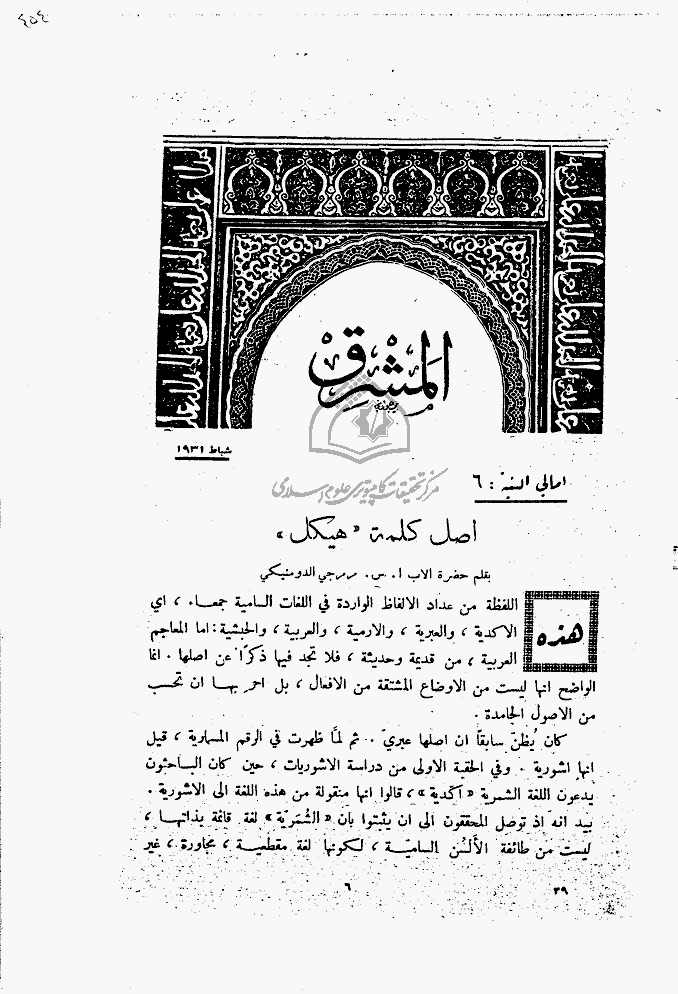 ٤٥٤
المشرق
شباط ١٩٣١
مركز تحقيقات كامپيوتری علوم اسلامی
امالي السنة : ٦
اصل كلمة «هيكل»
بقلم حضرة الاب ا. س. مرمرجي الدومنيكي
هذه اللفظة من عداد الالفاظ الواردة في اللغات السامية جمعاء ، اي
الاكدية ، والعبرية ، والارمية ، والعربية ، والحبشية : اما المعاجم
العربية ، من قديمة وحديثة ، فلا تجد فيها ذكرًا عن اصلها . انما
الواضح انها ليست من الاوضاع المشتقة من الافعال ، بل احرِ بها ان تحسب
من الاصول الجامدة .
كان يُظنّ سابقاً ان اصلها عبريّ . ثم لمَّا ظهرت في الرقم المسمارية ، قيل
انها اشورية . وفي الحقبة الاولى من دراسة الاشوريات ، حين كان الباحثون
يدعون اللغة الشمرية «اكدية» ، قالوا انها منقولة من هذه اللغة الى الاشورية .
بيد انه اذ توصل المحققون الى ان يثبتوا بأن «الشُّمَريّة» لغة قائمة بذاتها ،
ليست من طائفة الأَلْسُن الساميّة ، لكونها لغة مقطعية ، مجاورة ، غير
٦
٣٩